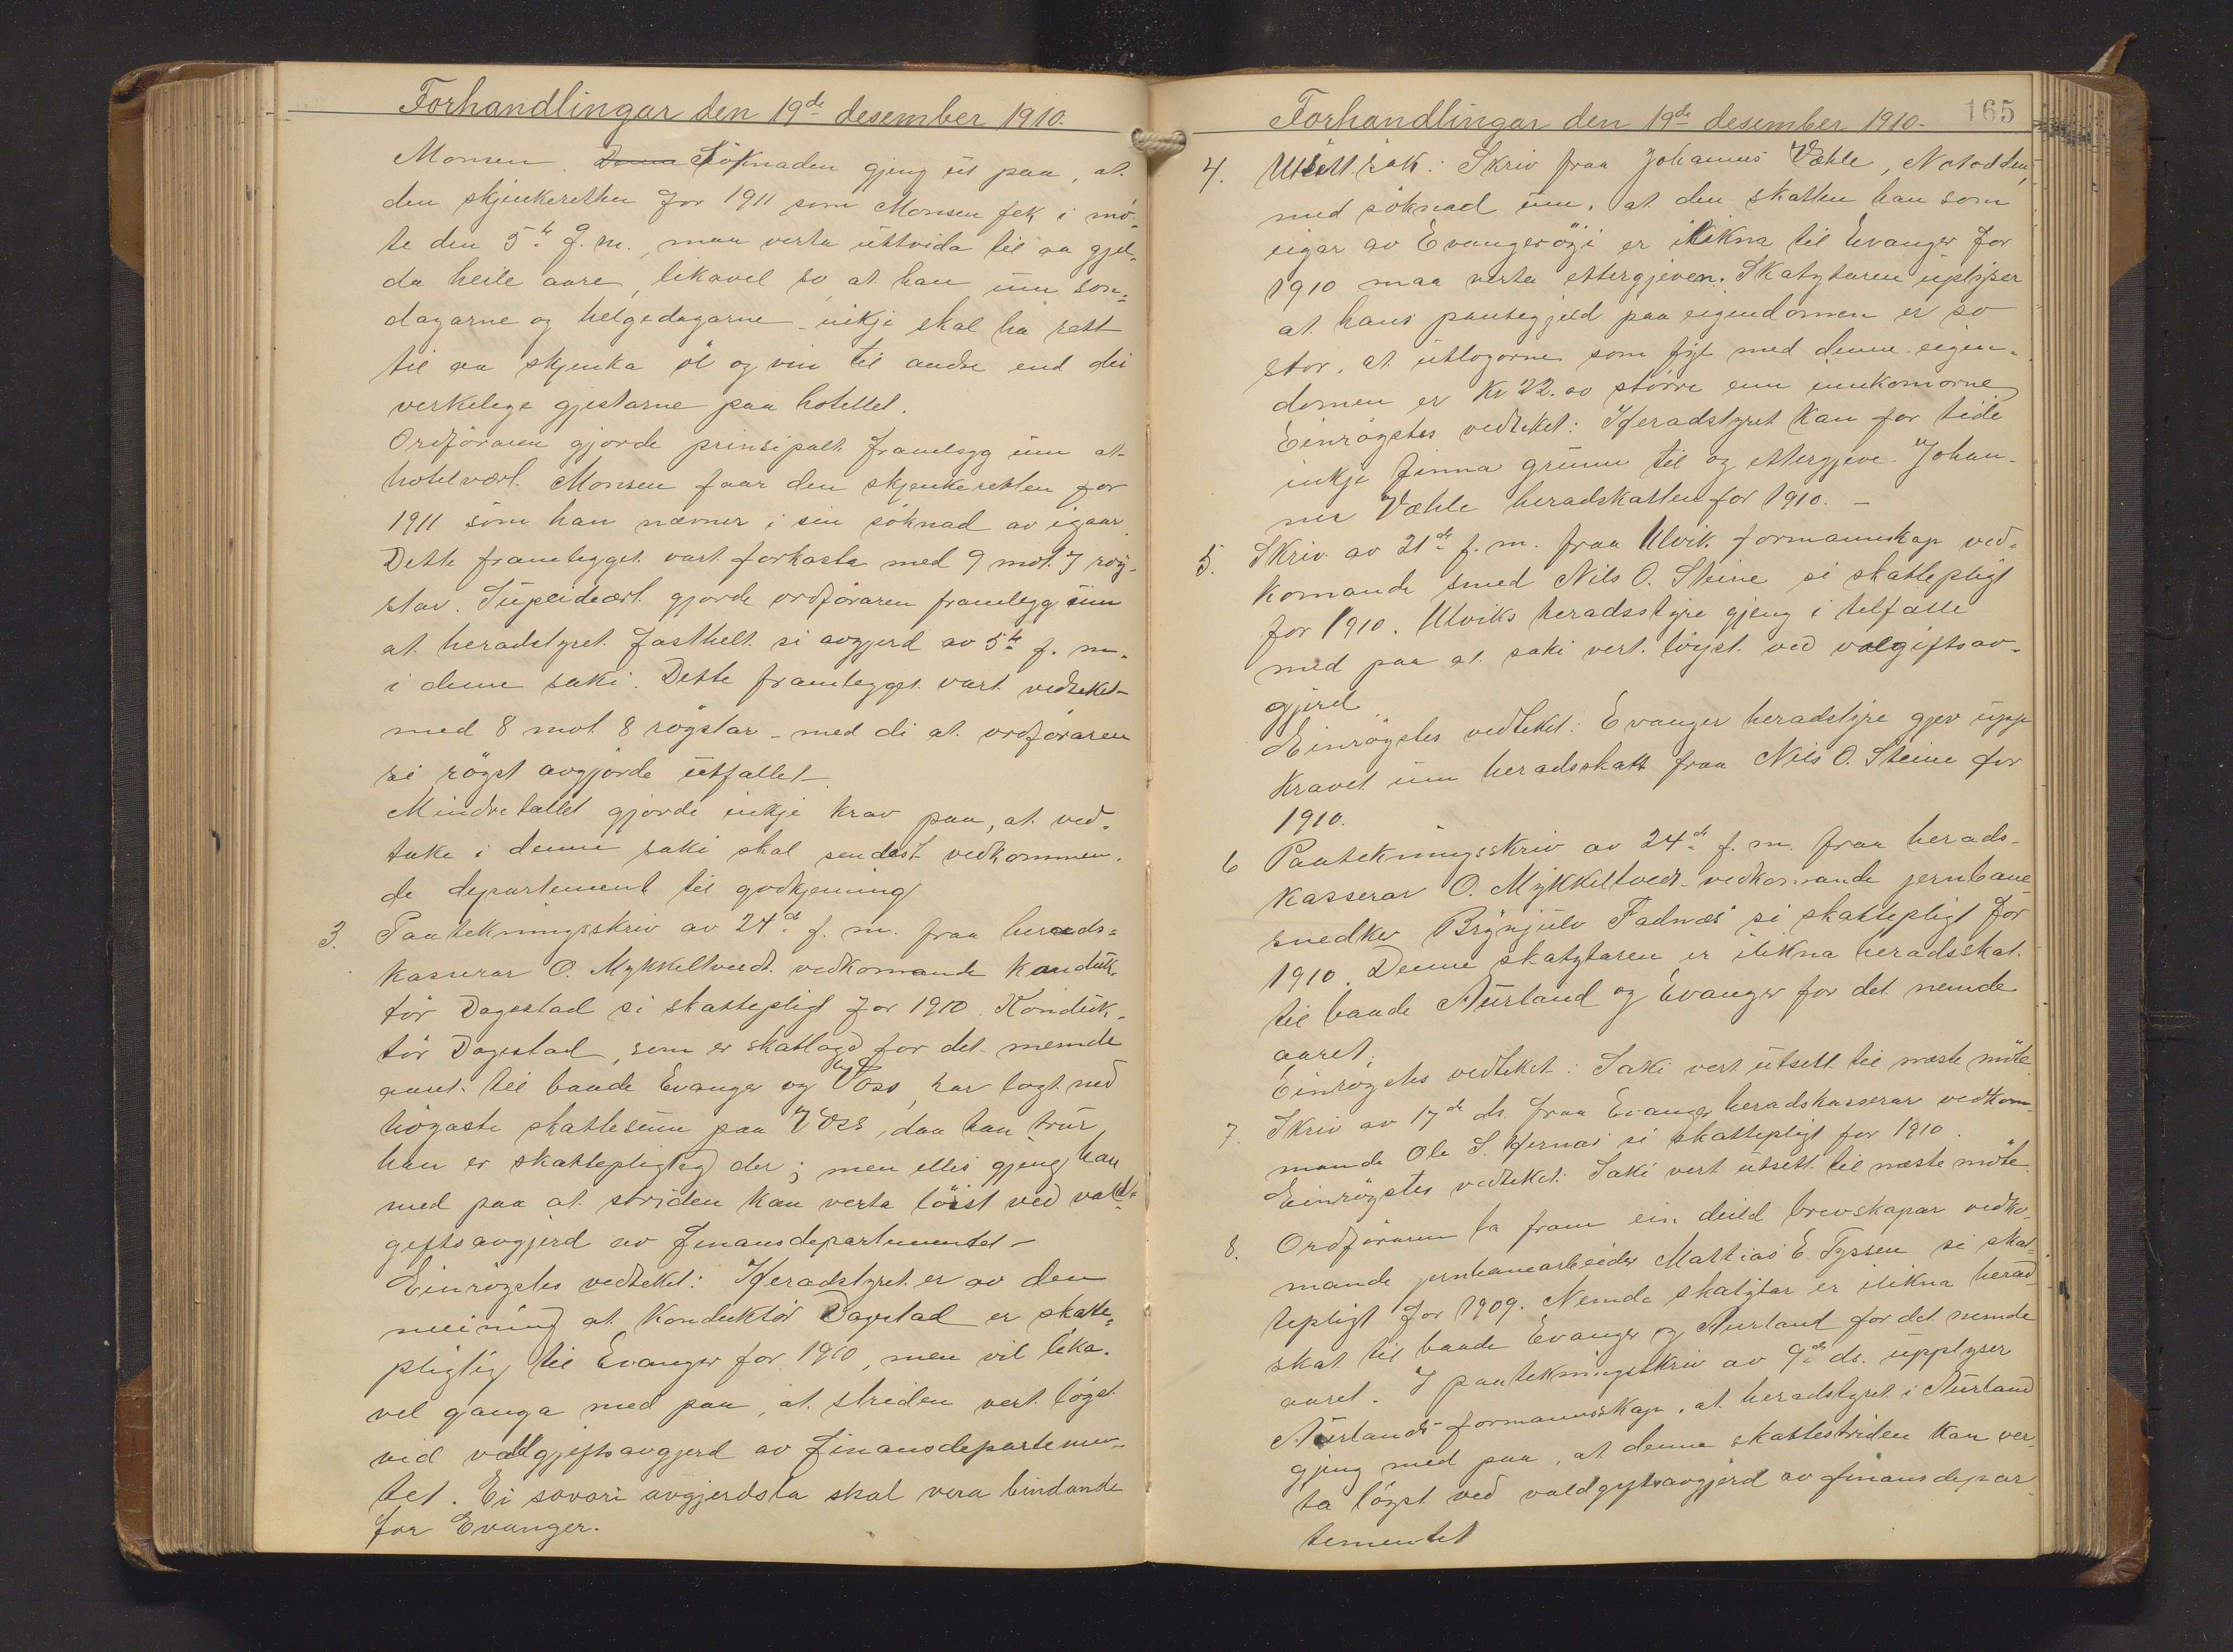 Forhandlingar den 19de desember 1910.
Monsen. Denne Söknaden gjeng ut paa, at
den skjenkeretten for 1911 som Monsen fek i mö-
te den 5te f.m., maa verta utvida til aa gjel-
da heile aare, likavel so at han um son-
dagarne og helgedagarne inkje skal ha rett
til aa skjenka öl og vin til andre end dei
verkelege gjestarne paa hotellet.
Ordföraren gjorde prinsipalt framlegg um at
hotelvært Monsen faar den skjenkeretten for
1911 som han nævner i sin söknad av igaar.
Dette framlegget vart forkasta med 9 mot 7 röy-
star. Supeideært gjorde ordföraren framlegg um
at heradstyret fasthelt si avgjerd av 5te f. m.
i denne saki. Dette framlegget vart vedteket
med 8 mot 8 röystar - med di at ordföraren
si röyst avgjorde utfallet.
Mindretallet gjorde inkje krav paa, at ved-
take i denne saki skal sendast vedkommen-
de departement til godkjenning
3. Paatekningsskriv av 24de f. m. fraa herads-
kasserar O. Mykkeltvedt vedkomande konduk-
tör Dagestad si skattepligt for 1910. Konduk-
tör Dagestad, som er skatlagd for det nemde
aaret til baade Evanger og Voss, har lagt ned
högaste skattesum paa Voss, daa han trur
han er skattepligtig der; men elles gjeng han
med paa at striden kan verta löist ved vald-
geftsavgjerd av finansdepartementet -
Einröystes vedteket: Heradstyret er av den
meining at konduktör Dagestad er skatte-
pligtig til Evanger for 1910, men vil lika-
vel ganga med paa, at striden vert löyst
vid valdgjeftsavgjerd av finansdepartemen-
tet. Ei sovori avgjerdsla skal vera bindande
for Evanger.
Forhandlingar den 19de desember 1910. 165
4. Utsett sak: Skriv fraa Johannes Væhle, Notodden,
med söknad um, at den skatten han som
eigar av Evangeröyi er ilikna til Evanger for
1910 maa verta ettergjeven. Skatytaren uplyser
at hans pantegjeld paa eigendomen er so
stor, at utlogorne som fyl med denne eigen-
domen er kr 22.00 större enn innkomorne
Einröystes vedteket: Heradstyret kan for tide
inkje finna grunn til og ettergjeve Johan-
nes Væhle heradskatten for 1910. -
5. Skriv av 21de f. m. fraa Ulvik formannskap ved-
komande smed Nils O. Steine si skattepligt
for 1910. Ulviks heradsstyre gjeng i tilfælle
med paa at saki vert löyst ved valgiftsav-
gjerd.
Einröystes vedteket: Evanger heradstyre gjev upp
kravet um heradsskatt fraa Nils O. Steine for
1910.
6 Paatekningsskriv av 24de f. m. fraa herads-
kasserar O. Mykkeltvedt vedkomande jernbane
snedker Brynjulv Fadnæs si skattepligt for
1910. Denne skatytaren er ilikna heradsskat
til baade Aurland og Evanger for det nemde
aaret.
Einröystes vedteket: Saki vert utsett til næste möte
7. Skriv av 17de ds. fraa Evanger heradskasserar vedkom-
mande Ole S. Hernæs si skattepligt for 1910.
Einröystes vedteket: Saki vert utsett til næste möte.
8. Ordföraren la fram ein deild brevskapar vedko-
mande jernbanearbeider Mattias E. Tyssen si skat-
tepligt for 1909. Nemde skatytar er ilikna herad-
skat til baade Evanger og Aurland for det nemde
aaret. I paatekningsskriv av 9de ds. upplyser
Aurlands formannsskap, at heradstyret i Aurland
gjeng med paa, at denne skattestriden kan ver-
ta löyst ved valdgiftsavgjerd av finansdepar-
tementet